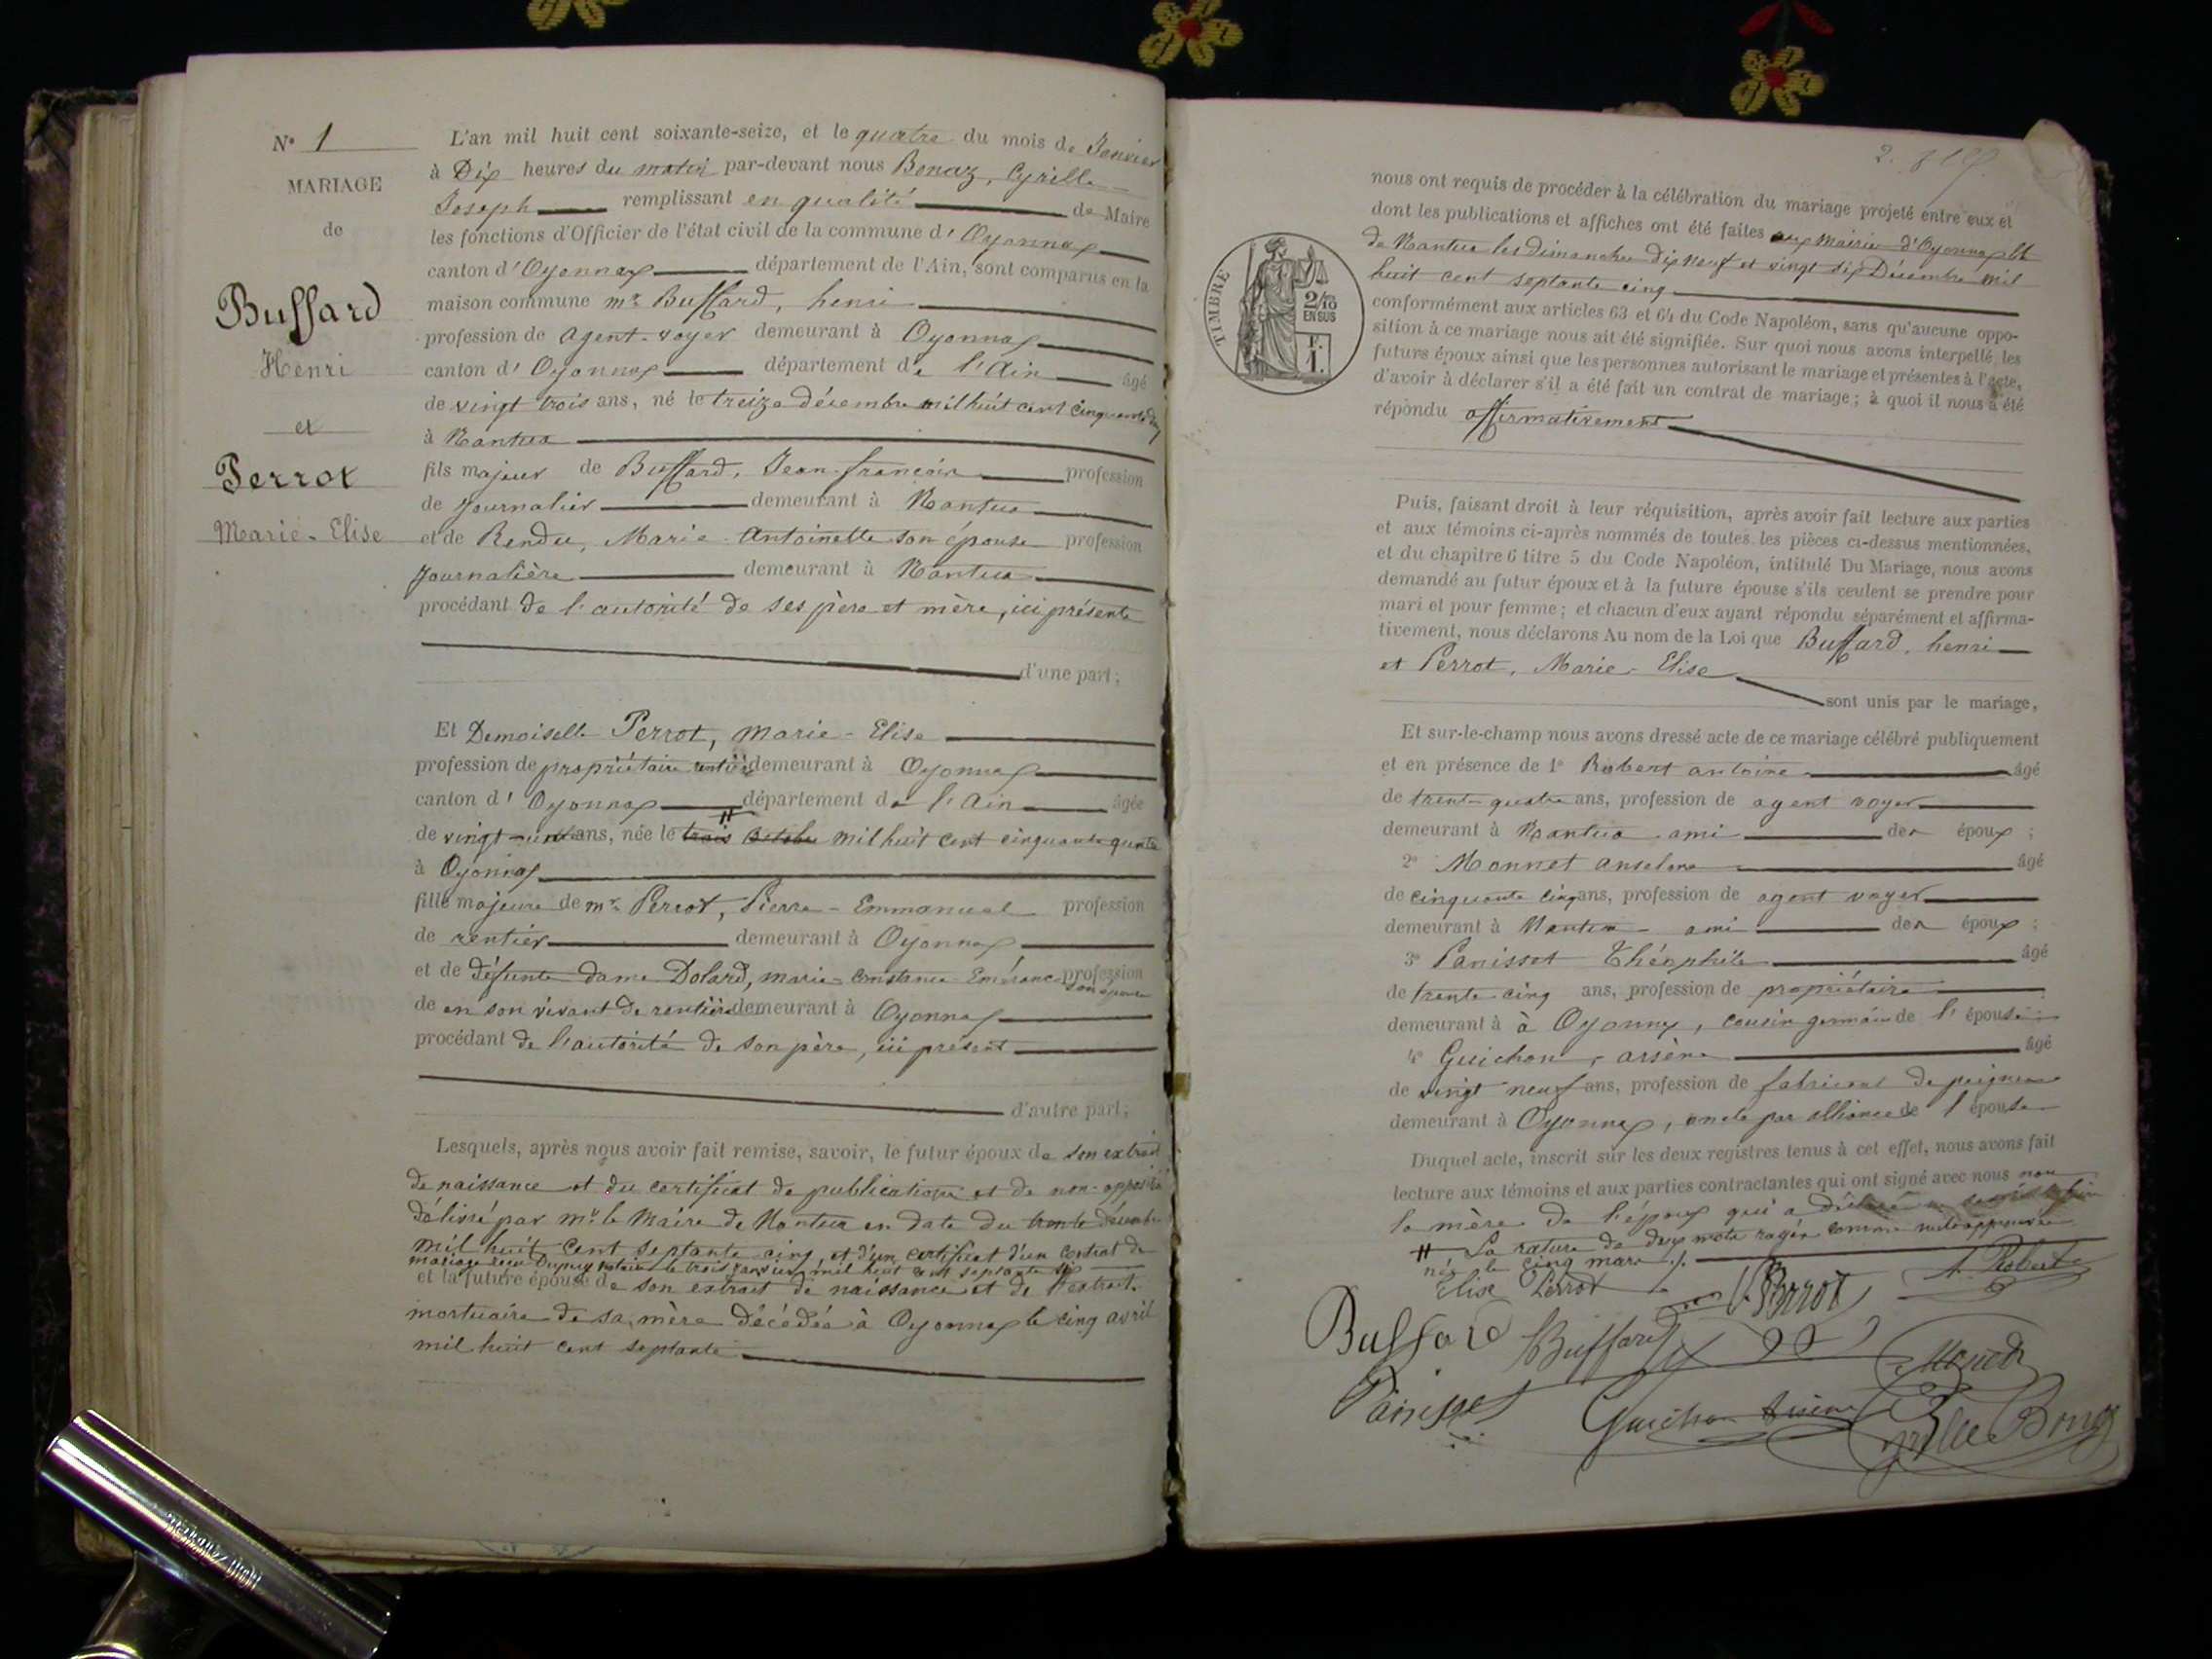 N° 1
MARIAGE
de
Buffard
Henri
et
Perrot
Marie-Elise
L'an mil huit cent soixante-seize, et le quatre du mois de Janvier
à Dix heures du matin par-devant nous Bonaz, Cyrille
Joseph remplissant en qualité de Maire
les fonctions d'Officier de l'état civil de la commune d'Oyonnax
canton d'Oyonnax département de l'Ain, sont comparus en la
maison commune mr Buffard, henri
profession de agent-voyer demeurant à Oyonnax
canton d'Oyonnax département de l'Ain âgé
de vingt trois ans, né le treize décembre mil huit cent cinquante deux
à Nantua
fils majeur de Buffard, Jean-françois profession
de journalier demeurant à Nantua
et de Rendu, Marie Antoinette son épouse profession
journalière demeurant à Nantua
procédant de l'autorité de ses père et mère, ici présents
d'une part;
Et Demoiselle Perrot, Marie-Elise
profession de propriétaire rentière demeurant à Oyonnax
canton d'Oyonnax département de l'Ain âgée
de vingt-un ans, née le trois octobre mil huit cent cinquante quatre
à Oyonnax
fille majeure de mr Perrot, Pierre-Emmanuel profession
de rentier demeurant à Oyonnax
et de défunte dame Dolard, marie-constance Emérance profession
son épouse
de en son vivant de rentière demeurant à Oyonnax
procédant de l'autorité de son père, ici présent
d'autre part;
Lesquels, après nous avoir fait remise, savoir, le futur époux de son extrait
de naissance et du certificat de publications et de non-opposition
délivré par mr le Maire de Nantua en date du trente décembre
mil huit cent septante cinq, et d'un certificat d'un contrat de
mariage reçu Dupuy notaire le trois janvier mil huit cent septante six
et la future épouse de son extrait de naissance et de l'extrait
mortuaire de sa mère décédée à Oyonnax le cinq avril
mil huit cent septante
2.
TIMBRE
2/10
EN SUS
F.
1.
nous ont requis de procéder à la célébration du mariage projeté entre eux et
dont les publications et affiches ont été faites aux mairies d'Oyonnax et
de Nantua les dimanches dix neuf et vingt six Décembre mil
huit cent septante cinq
conformément aux articles 63 et 64 du Code Napoléon, sans qu'aucune oppo-
sition à ce mariage nous ait été signifiée. Sur quoi nous avons interpellé les
futurs époux ainsi que les personnes autorisant le mariage et présentes à l'acte,
d'avoir à déclarer s'il a été fait un contrat de mariage; à quoi il nous a été
répondu affirmativement
Puis, faisant droit à leur réquisition, après avoir fait lecture aux parties
et aux témoins ci-après nommés de toutes les pièces ci-dessus mentionnées,
et du chapitre 6 titre 5 du Code Napoléon, intitulé Du Mariage, nous avons
demandé au futur époux et à la future épouse s'ils veulent se prendre pour
mari et pour femme; et chacun d'eux ayant répondu séparément et affirma-
tivement, nous déclarons Au nom de la Loi que Buffard, henri
et Perrot, Marie-Elise
sont unis par le mariage,
Et sur-le-champ nous avons dressé acte de ce mariage célébré publiquement
et en présence de 1° Robert antoine âgé
de trente-quatre ans, profession de agent voyer
demeurant à Nantua ami des époux;
2° Monnet anselme âgé
de cinquante cinq ans, profession de agent voyer
demeurant à Nantua ami des époux;
3° Panisset Théophile âgé
de trente cinq ans, profession de propriétaire
demeurant à à Oyonnax, cousin germain de l'épouse
4° Guichon, arsène âgé
de vingt neuf ans, profession de fabricant de peignes
demeurant à Oyonnax, oncle par alliance de l'épouse
Duquel acte, inscrit sur les deux registres tenus à cet effet, nous avons fait
lecture aux témoins et aux parties contractantes qui ont signé avec nous non
la mère de l'époux qui a déclaré ne savoir
La rature de deux mots rayés comme nuls approuvée
née le cinq mars
Elise Perrot
Perrot
A. Robert
Buffard
Buffard
Monnet
Panisset
Guichon Arsène
Cyrille Bonaz